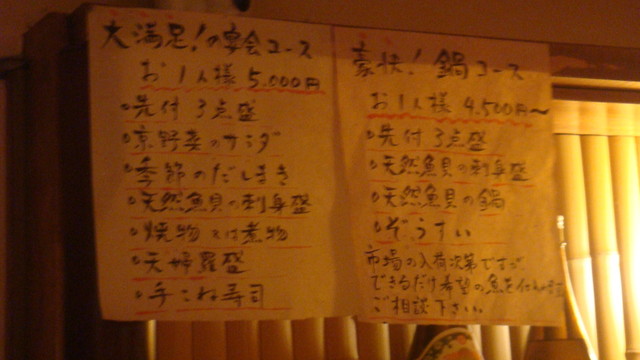 大満足!の宴会コース
お1人様 5.000円
・先付 3点盛
・京野菜のサラダ
・季節のだしまき
・天然魚貝の刺身盛
・焼物又は煮物
・天婦羅盛
・手こね寿司
豪快!鍋コース
お1人様 4.500円〜
・先付 3点盛
・天然魚貝の刺身盛
・天然魚貝の鍋
・ぞうすい
市場の入荷次第ですが
できるだけ希望の魚を仕入れ
ご相談下さい。